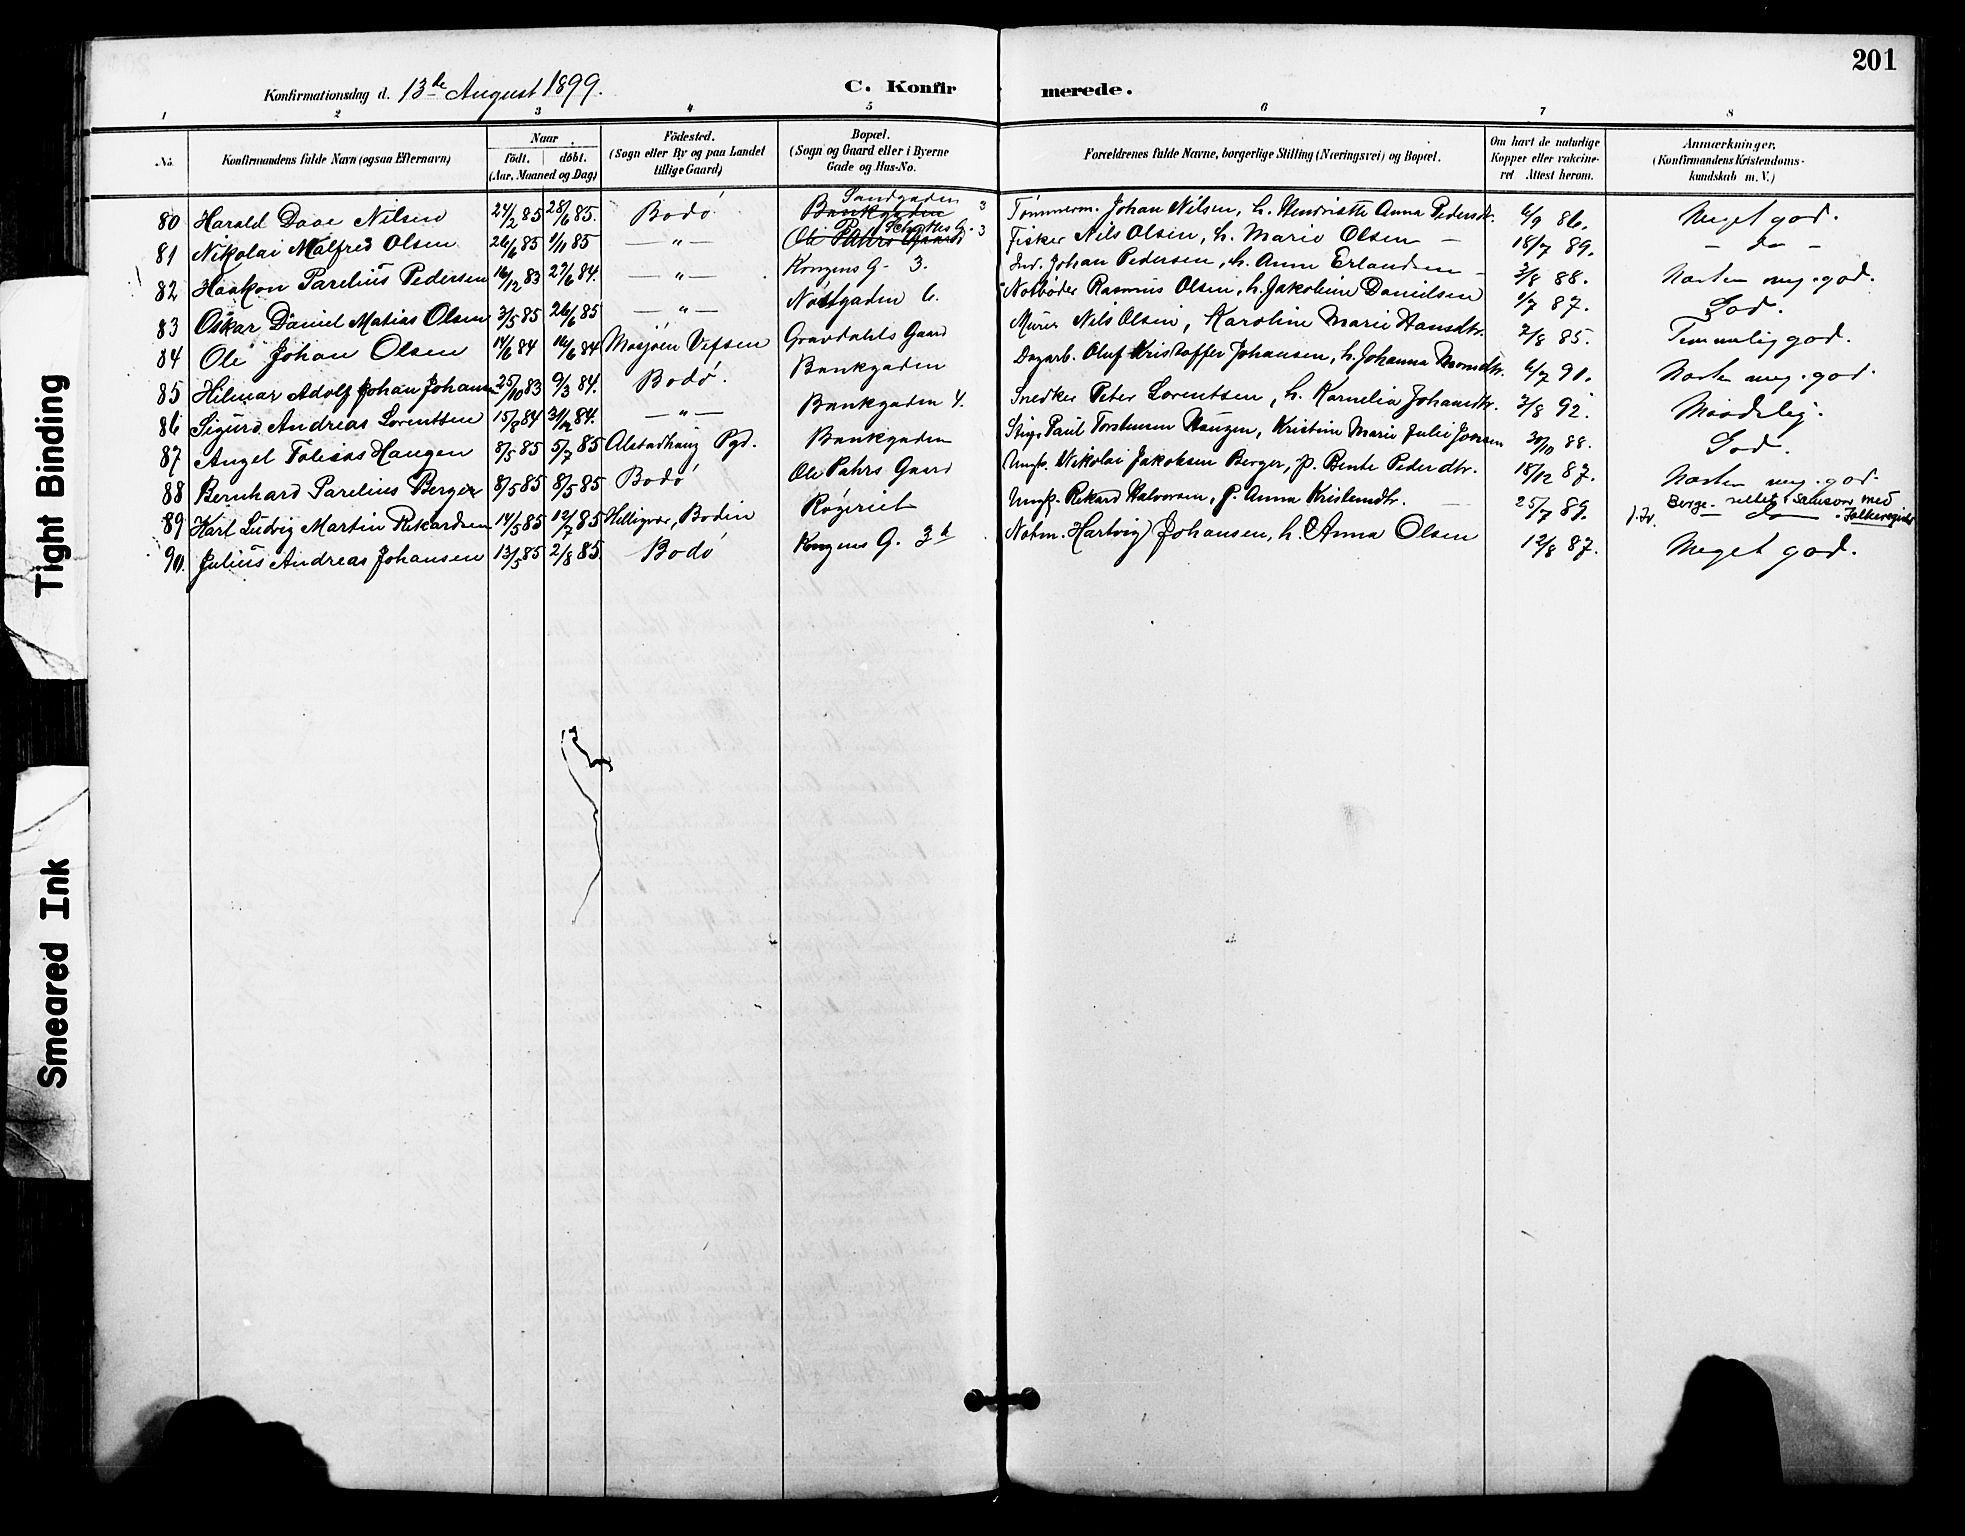 201
Konfirmationsdag d. 13de August 1899.
C. Konfirmerede.
1 2 3 4 5 6 7 8
No.
Konfirmandens fulde Navn (ogsaa Efternavn)
Naar
födt. döbt.
(Aar, Maaned og Dag)
Födested.
(Sogn eller By og paa Landet
tillige Gaard)
Bopæl.
(Sogn og Gaard eller i Byerne
Gade og Hus-No.
Forældrenes fulde Navne, borgerlige Stilling (Næringsvei) og Bopæl.
Om havt de naturlige
Kopper eller vakcine-
ret Attest herom.
Anmærkninger.
(Konfirmandens Kristendoms-
kundskab m. V.)
80 Harald Daae Nilsen 24/2 85 28/6 85. Bodø Bankgaden Sandgaden 3 Tømmerm. Johan Nilsen, h. Henriette Anna Pedersdtr. 6/9 86. Meget god.
81 Nikolai Malfred Olsen 26/6 85 1/11 85 — " — Ole Pahrs Gaard G. 3 Fisker Nils Olsen, h. Marie Olsen — 18/7 89. — do —
82 Haakon Parelius Pedersen 16/12 83 27/6 84. — " — Kongens G. 3. Ind. Johan Pedersen, h. Anne Erlandsen — 3/8 88. Næsten meg. god.
83 Oskar Daniel Matias Olsen 3/5 85 26/6 85 — " — Nøstgaden 6. Notbøder Rasmus Olsen, h. Jakobine Danielsen 1/7 87. God.
84 Ole Johan Olsen 14/6 84 16/6 84 Mosjøen Vefsen Gravdahls Gaard Murer Nils Olsen, Karoline Marie Hansdtr. 7/8 85. Temmelig god.
85 Hilmar Adolf Johan Johansen 25/10 83 9/3 84. Bodø. Bankgaden Dagarb. Oluf Kristoffer Johansen, h. Johanna Monsdtr. 6/7 91. Næsten meg. god.
86 Sigurd Andreas Lorentsen 15/8 84 31/12 84. — " — Bankgaden 4. Snedker Peter Lorentsen, h. Kornelia Johansdtr. 3/8 92. Maadelig.
87 Angel Tobias Haugen 8/5 85 5/7 85 Alstadhaug Pgd. Bankgaden Paul Torstensen Haugen, Kristine Marie Julie Jonsen 30/10 88. God.
88 Bernhard Parelius Berger 8/5 85 8/5 85 Bodø Ole Pahrs Gaard Ungk. Nikolai Jakobsen Berger, p. Bente Pedersdtr. 18/12 87. Næsten meg. god.
Berge - rettet i samsvar med
Folkeregister
89 Karl Ludvig Martin Rikardsen 14/5 85 12/7 85 Helligvær, Bodin Røgeriet Ungk. Rikard Halvorsen, p. Anna Kristensdtr. — 25/7 89. — do —
90. Julius Andreas Johansen 13/5 85 2/8 85 Bodø Kongens G. 3 b Notm. Hartvig Johansen, h. Anna Olsen 12/8 87. Meget god.
Tight Binding
Smeared Ink